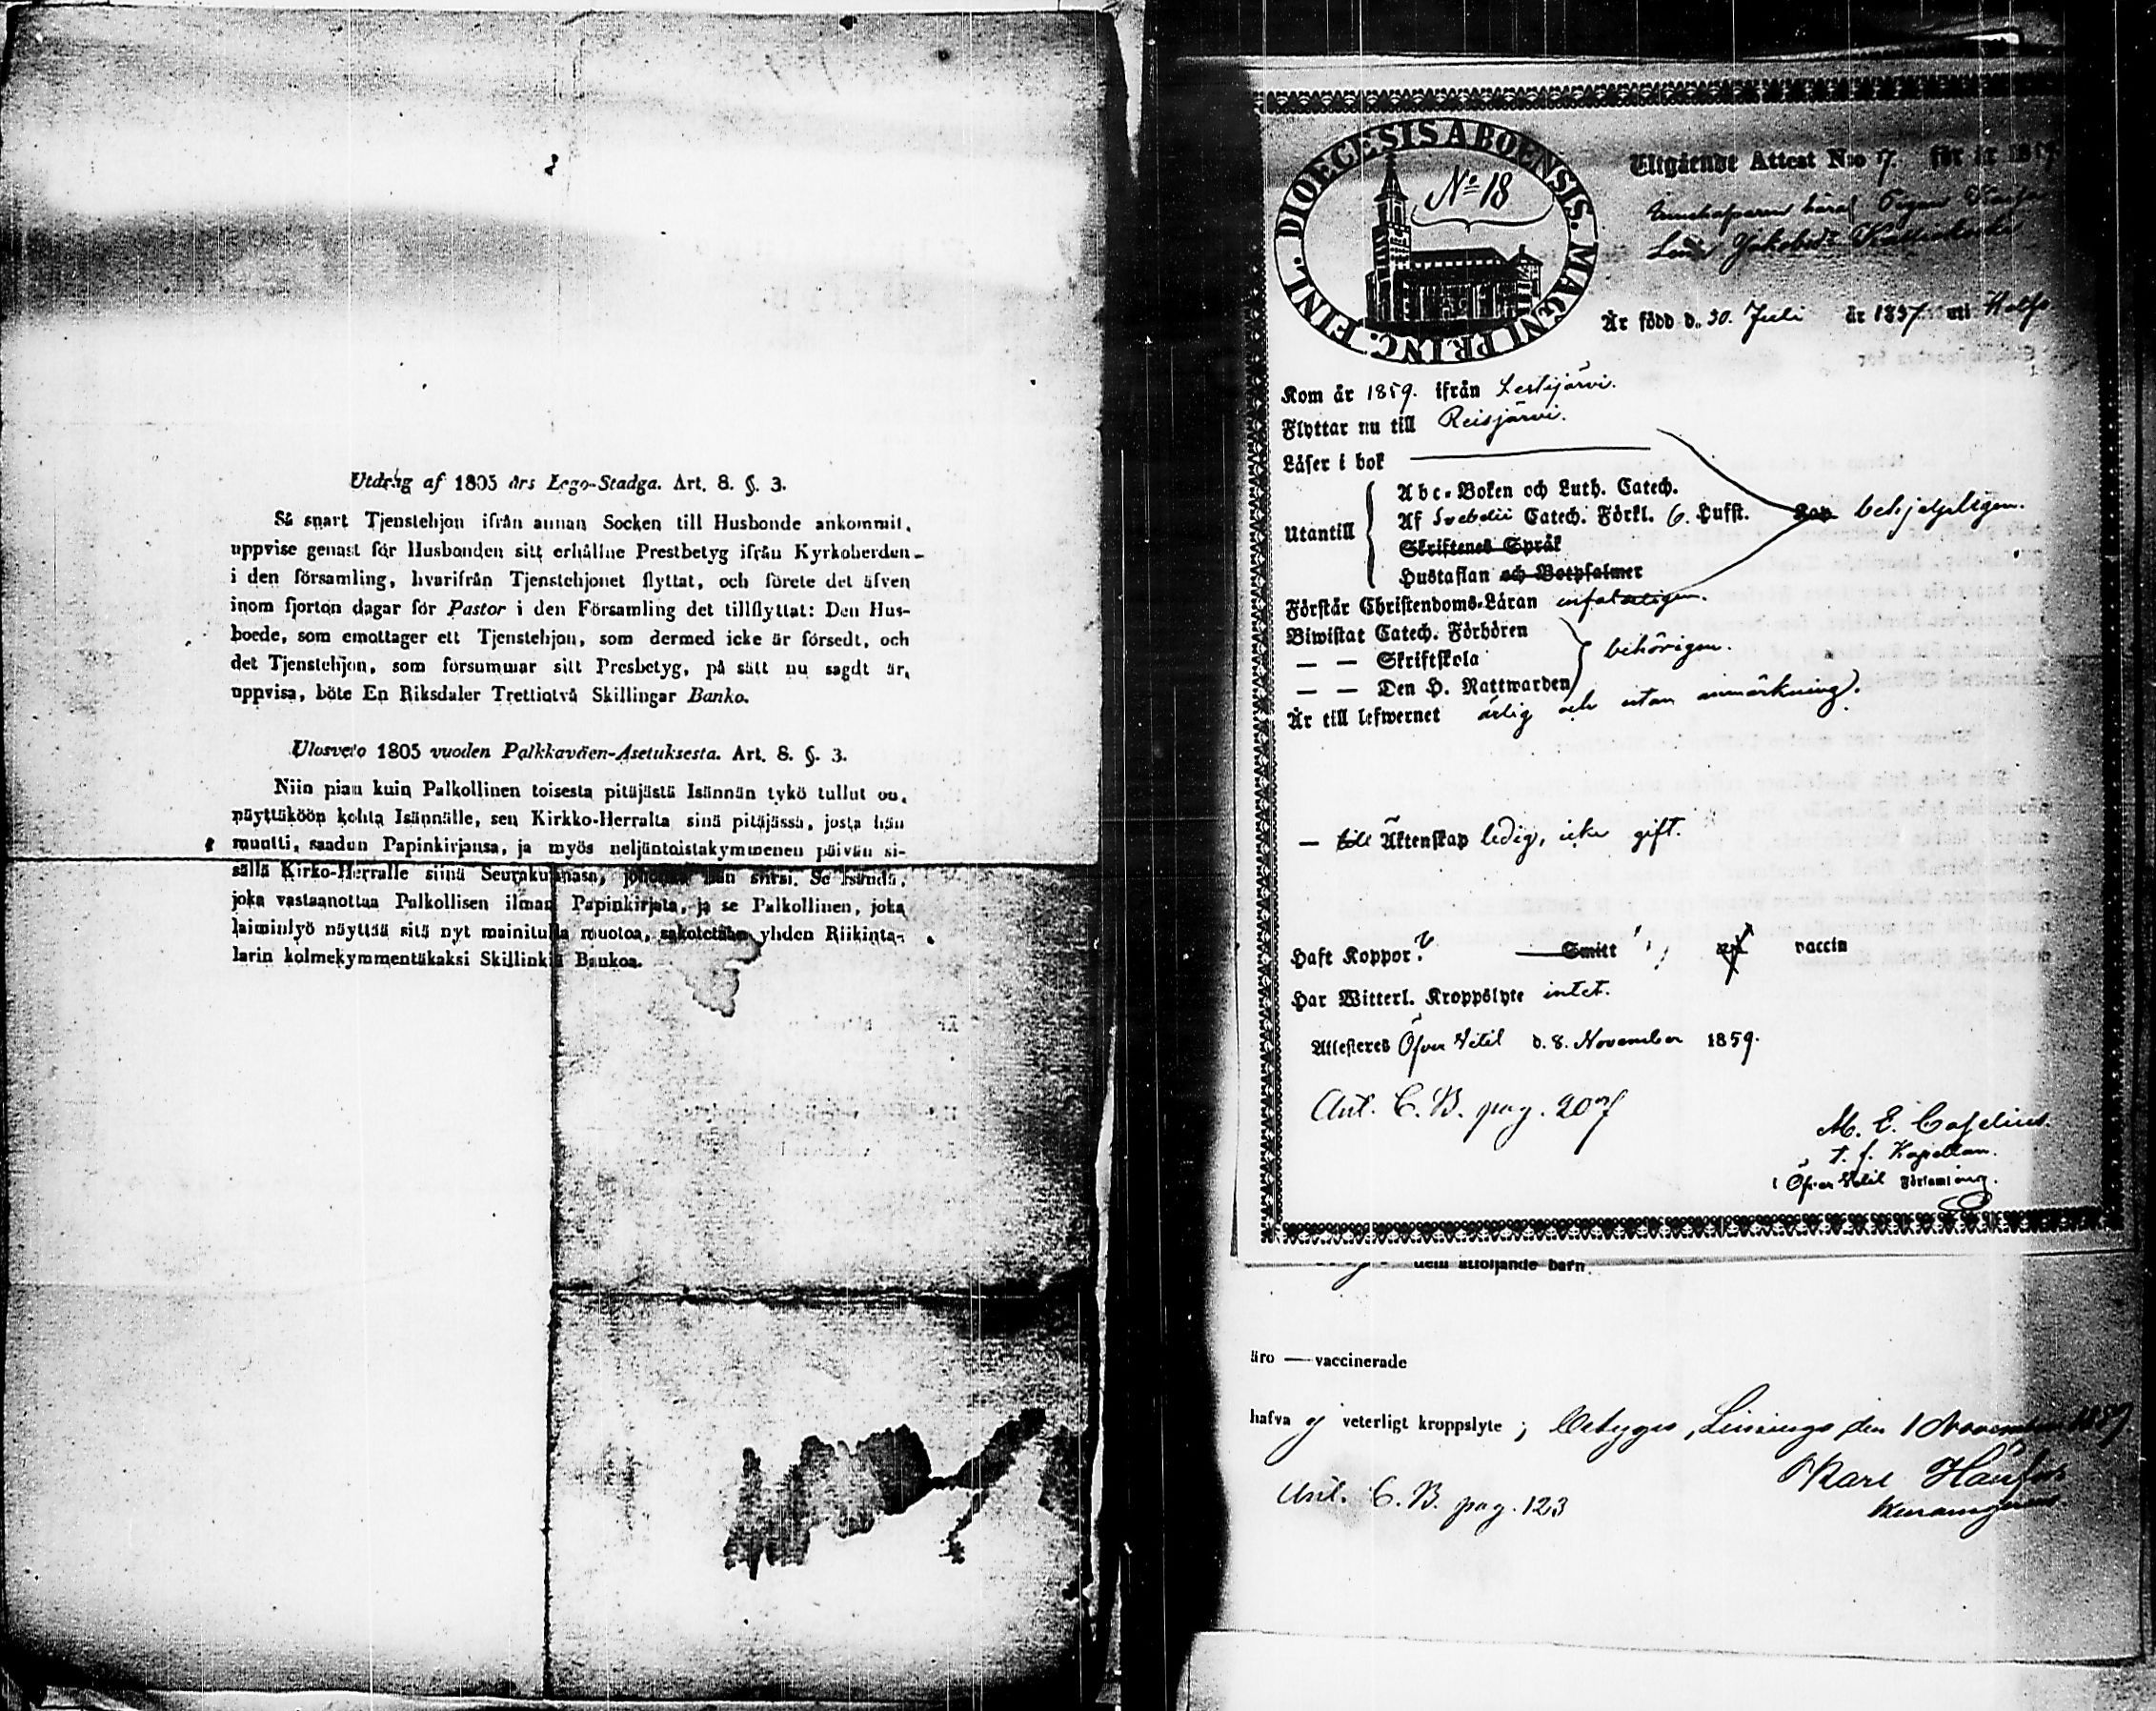 Utdrag af 1805 års Lego-Stadga. Art. 8. §. 3.
Så snart Tjenstehjon ifrån annan Socken till Husbonde ankommit,
uppvise genast för Husbonden sitt erhållne Prestbetyg ifrån Kyrkoherden
i den församling, hvarifrån Tjenstehjonet flyttat, och förete det äfven
inom fjorton dagar för Pastor i den Församling det tillflyttat: Den Hus-
boede, som emottager ett Tjenstehjon, som dermed icke är försedt, och
det Tjenstehjon, som forsummar sitt Presbetyg, på sätt nu sagdt är,
uppvisa, böte En Riksdaler Trettiotvå Skillingar Banko.
Ulosveto 1805 vuoden Palkkaväen-Asetuksesta. Art. 8. §. 3.
Niin pian kuin Palkollinen toisesta pitäjästä Isännän tykö tullut on,
näyttäköön kohta Isännälle, sen Kirkko-Herralta sinä pitäjässä, josta hän
muutti, saadun Papinkirjansa, ja myös neljäntoistakymmenen päivän si-
sällä Kirko-Herralle siinä Seurakunnasa, johonka hän siirsi. Se Isäudä,
joka vastaanottaa Palkollisen ilman Papinkirjata, ja se Palkollinen, joka
laiminlyö näyttää sitä nyt mainitulla muotoa, sakotetahn yhden Riikinta-
larin kolmekymmentäkaksi Skillinkiä Bankoa.
DIOECESIS ABOENSIS. MAGNI PRINC. FINL.
No 18
Utgående Attest N:o 17. för år 1859
Jakobsd:r
Är född d. 30. Juli år 1837 uti
Kom år 1859. ifrån Lestijärvi.
Flyttar nu till Reisjärvi.
Läser i bok
Utantill
Abc-Boken och Luth. Catech.
Af Svebelii Catech. Förkl. 6. Hufst.
Skriftenes Språk
Hustaflan och Botpsalmer
behjelpligen.
Förstår Christendoms-Läran
Biwistat Catech. Förhören
— — Skriftskola
— — Den H. Nattwarden
behörigen.
Är till lefwernet ärlig och utan anmärkning.
— till Äktenskap ledig, icke gift.
Haft Koppor? Smitt vaccin
Har Witterl. Kroppslyte intet.
Attesteres Öfver Vetil d. 8. November 1859.
Ant. C. B. pag. 207
M. E. Caselius.
t. f. Kapellan.
i Öfver Vetil Församling.
dem åtföljande barn.
äro — vaccinerade
hafva ej veterligt kroppslyte; Betygas, den 1 November 1859
Ant. C. B. pag. 123
Karl